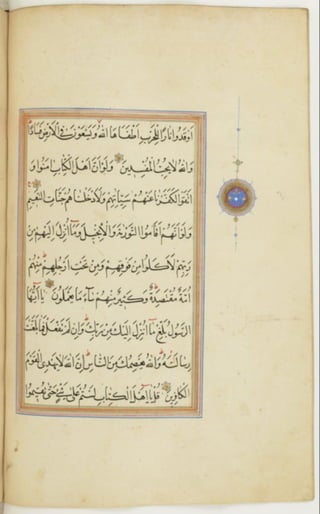 اوقدوا نارا للحرب اطفاها الله ويسعون في الارض فسادا
والله لا يحب المفسدين ولو ان اهل الكتاب امنوا و
اتقوا لكفرنا عنهم سيئاتهم ولادخلناهم جنات النعيم
ولو انهم اقاموا التورية والانجيل وما انزل اليهم من
ربهم لاكلوا من فوقهم ومن تحت ارجلهم منهم
امة مقتصدة وكثير منهم ساء ما يعملون يا ايها
الرسول بلغ ما انزل اليك من ربك وان لم تفعل فما بلغت
رسالته والله يعصمك من الناس ان الله لا يهدي القوم
الكافرين قل يا اهل الكتاب لستم على شيء حتى تقيموا